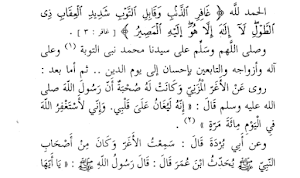 الحمد لله ﴿ غَافِرِ الذَّنْبِ وَقَابِلِ التَّوْبِ شَدِيدِ الْعِقَابِ ذِى
الطَّوْلِ لَآ إِلَهَ إِلَّا هُوَ إِلَيْهِ الْمَصِيرُ ﴾ [ غافر : ٣ ] .
وصلى اللهم وسلم على سيدنا محمد نبى التوبة (١) وعلى
آله وأزواجه والتابعين بإحسان إلى يوم الدين .. ثم أما بعد :
روى عَنْ الأَغَرِّ الْمُزَنِيِّ وَكَانَتْ لَهُ صُحْبَةٌ أَنَّ رَسُولَ اللَّهِ صلى
الله عليه وسلم قَالَ : « إِنَّهُ لَيُغَانُ عَلَى قَلْبِي، وَإِنِّي لَأَسْتَغْفِرُ اللهَ
فِي الْيَوْمِ مِائَةَ مَرَّةٍ » (٢) .
وعن أَبِي بُرْدَةَ قَالَ : سَمِعْتُ الأَغَرَّ وَكَانَ مِنْ أَصْحَابِ
النَّبِيِّ ﷺ يُحَدِّثُ ابْنَ عُمَرَ قَالَ : قَالَ رَسُولُ اللَّهِ ﷺ : « يَا أَيُّهَا